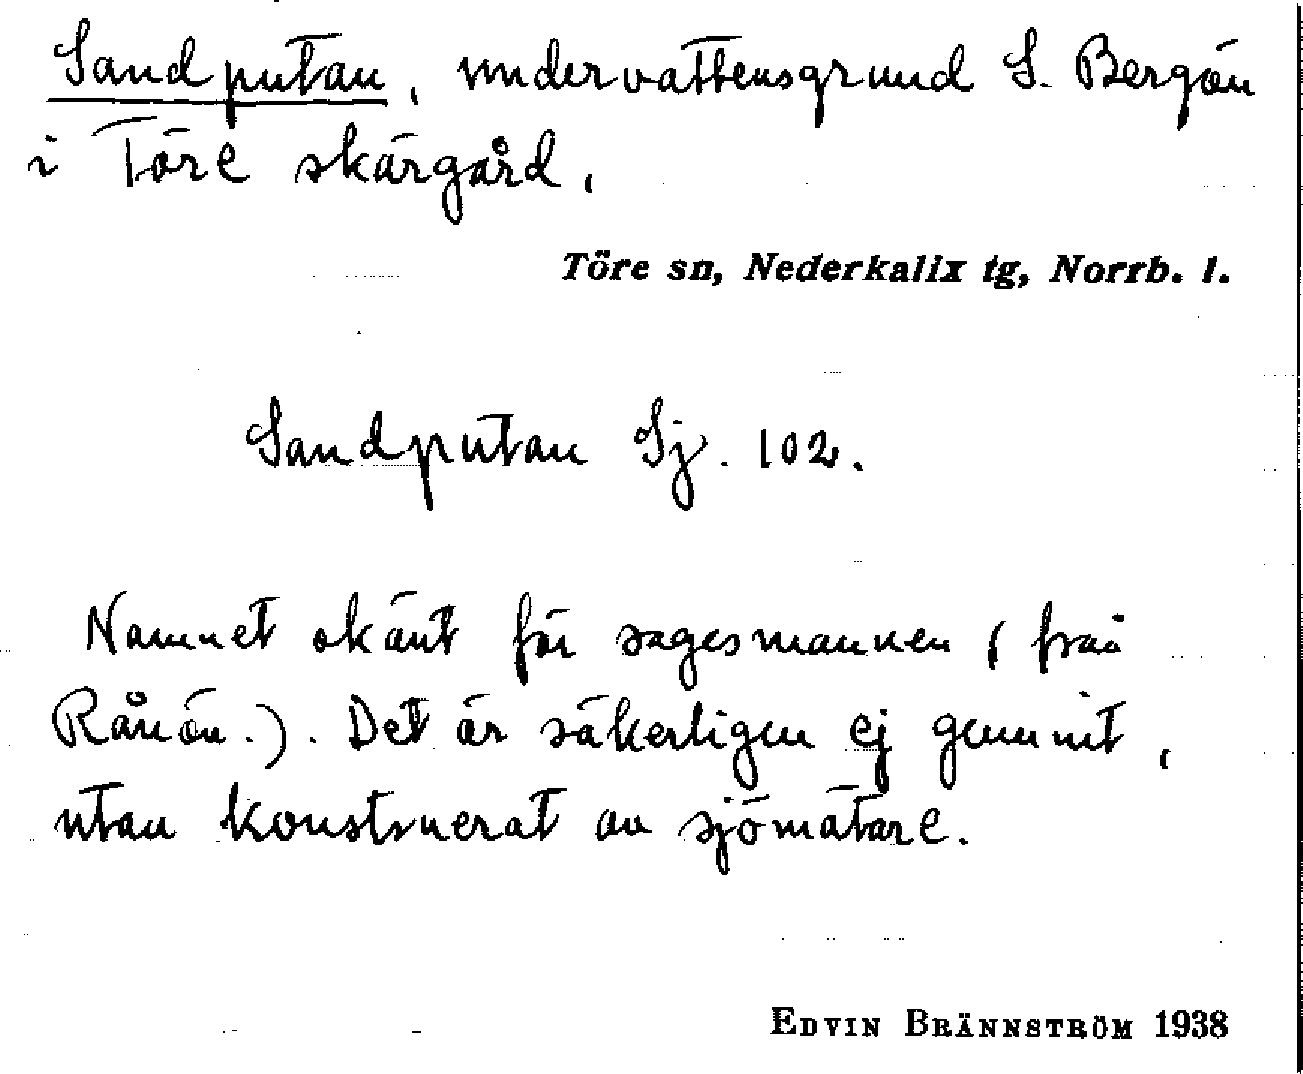 Sandputan, undervattensgrund S. Bergön
i Töre skärgård,
Töre sn, Nederkalix tg, Norrb. l.
Sandputan Sj. 102.
Namnet okänt för sagesmannen (från
Rånön.). Det är säkerligen ej genuint,
utan konstruerat av sjömätare.
EDVIN BRÄNNSTRÖM 1938